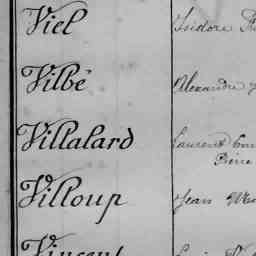 Viel Isidore
Vilbé Alexandre
Villalard Laurent
Pierre
Villoup Jean
Vincent